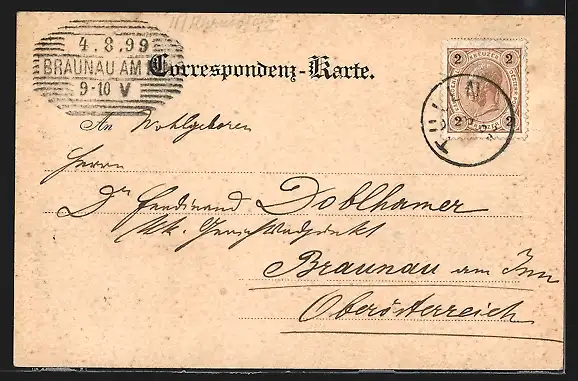 4.8.99
BRAUNAU AM
9-10 V
Correspondenz-Karte.
2 KREUZER 2
2 2
TULLN
An Wohlgeboren
Herrn
Dr Ferdinand Doblhamer
k.k.
Braunau am Inn
Oberösterreich